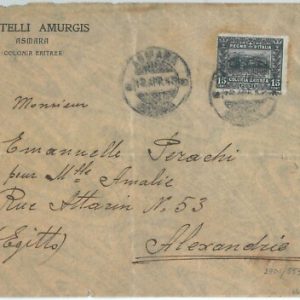 TELLI AMURGIS
ASMARA
COLONIA ERITREA
ASMARA
REGNO D'ITALIA
15 COLONIA ERITREA 15
Monsieur
Emanuelle Perachi
pour Mlle Amalie
Rue Attarin N. 53
(Egitto) Alexandrie